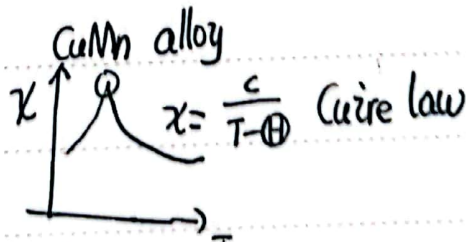 CuMn alloy
χ
χ = c/(T-Θ) Cuire law
T